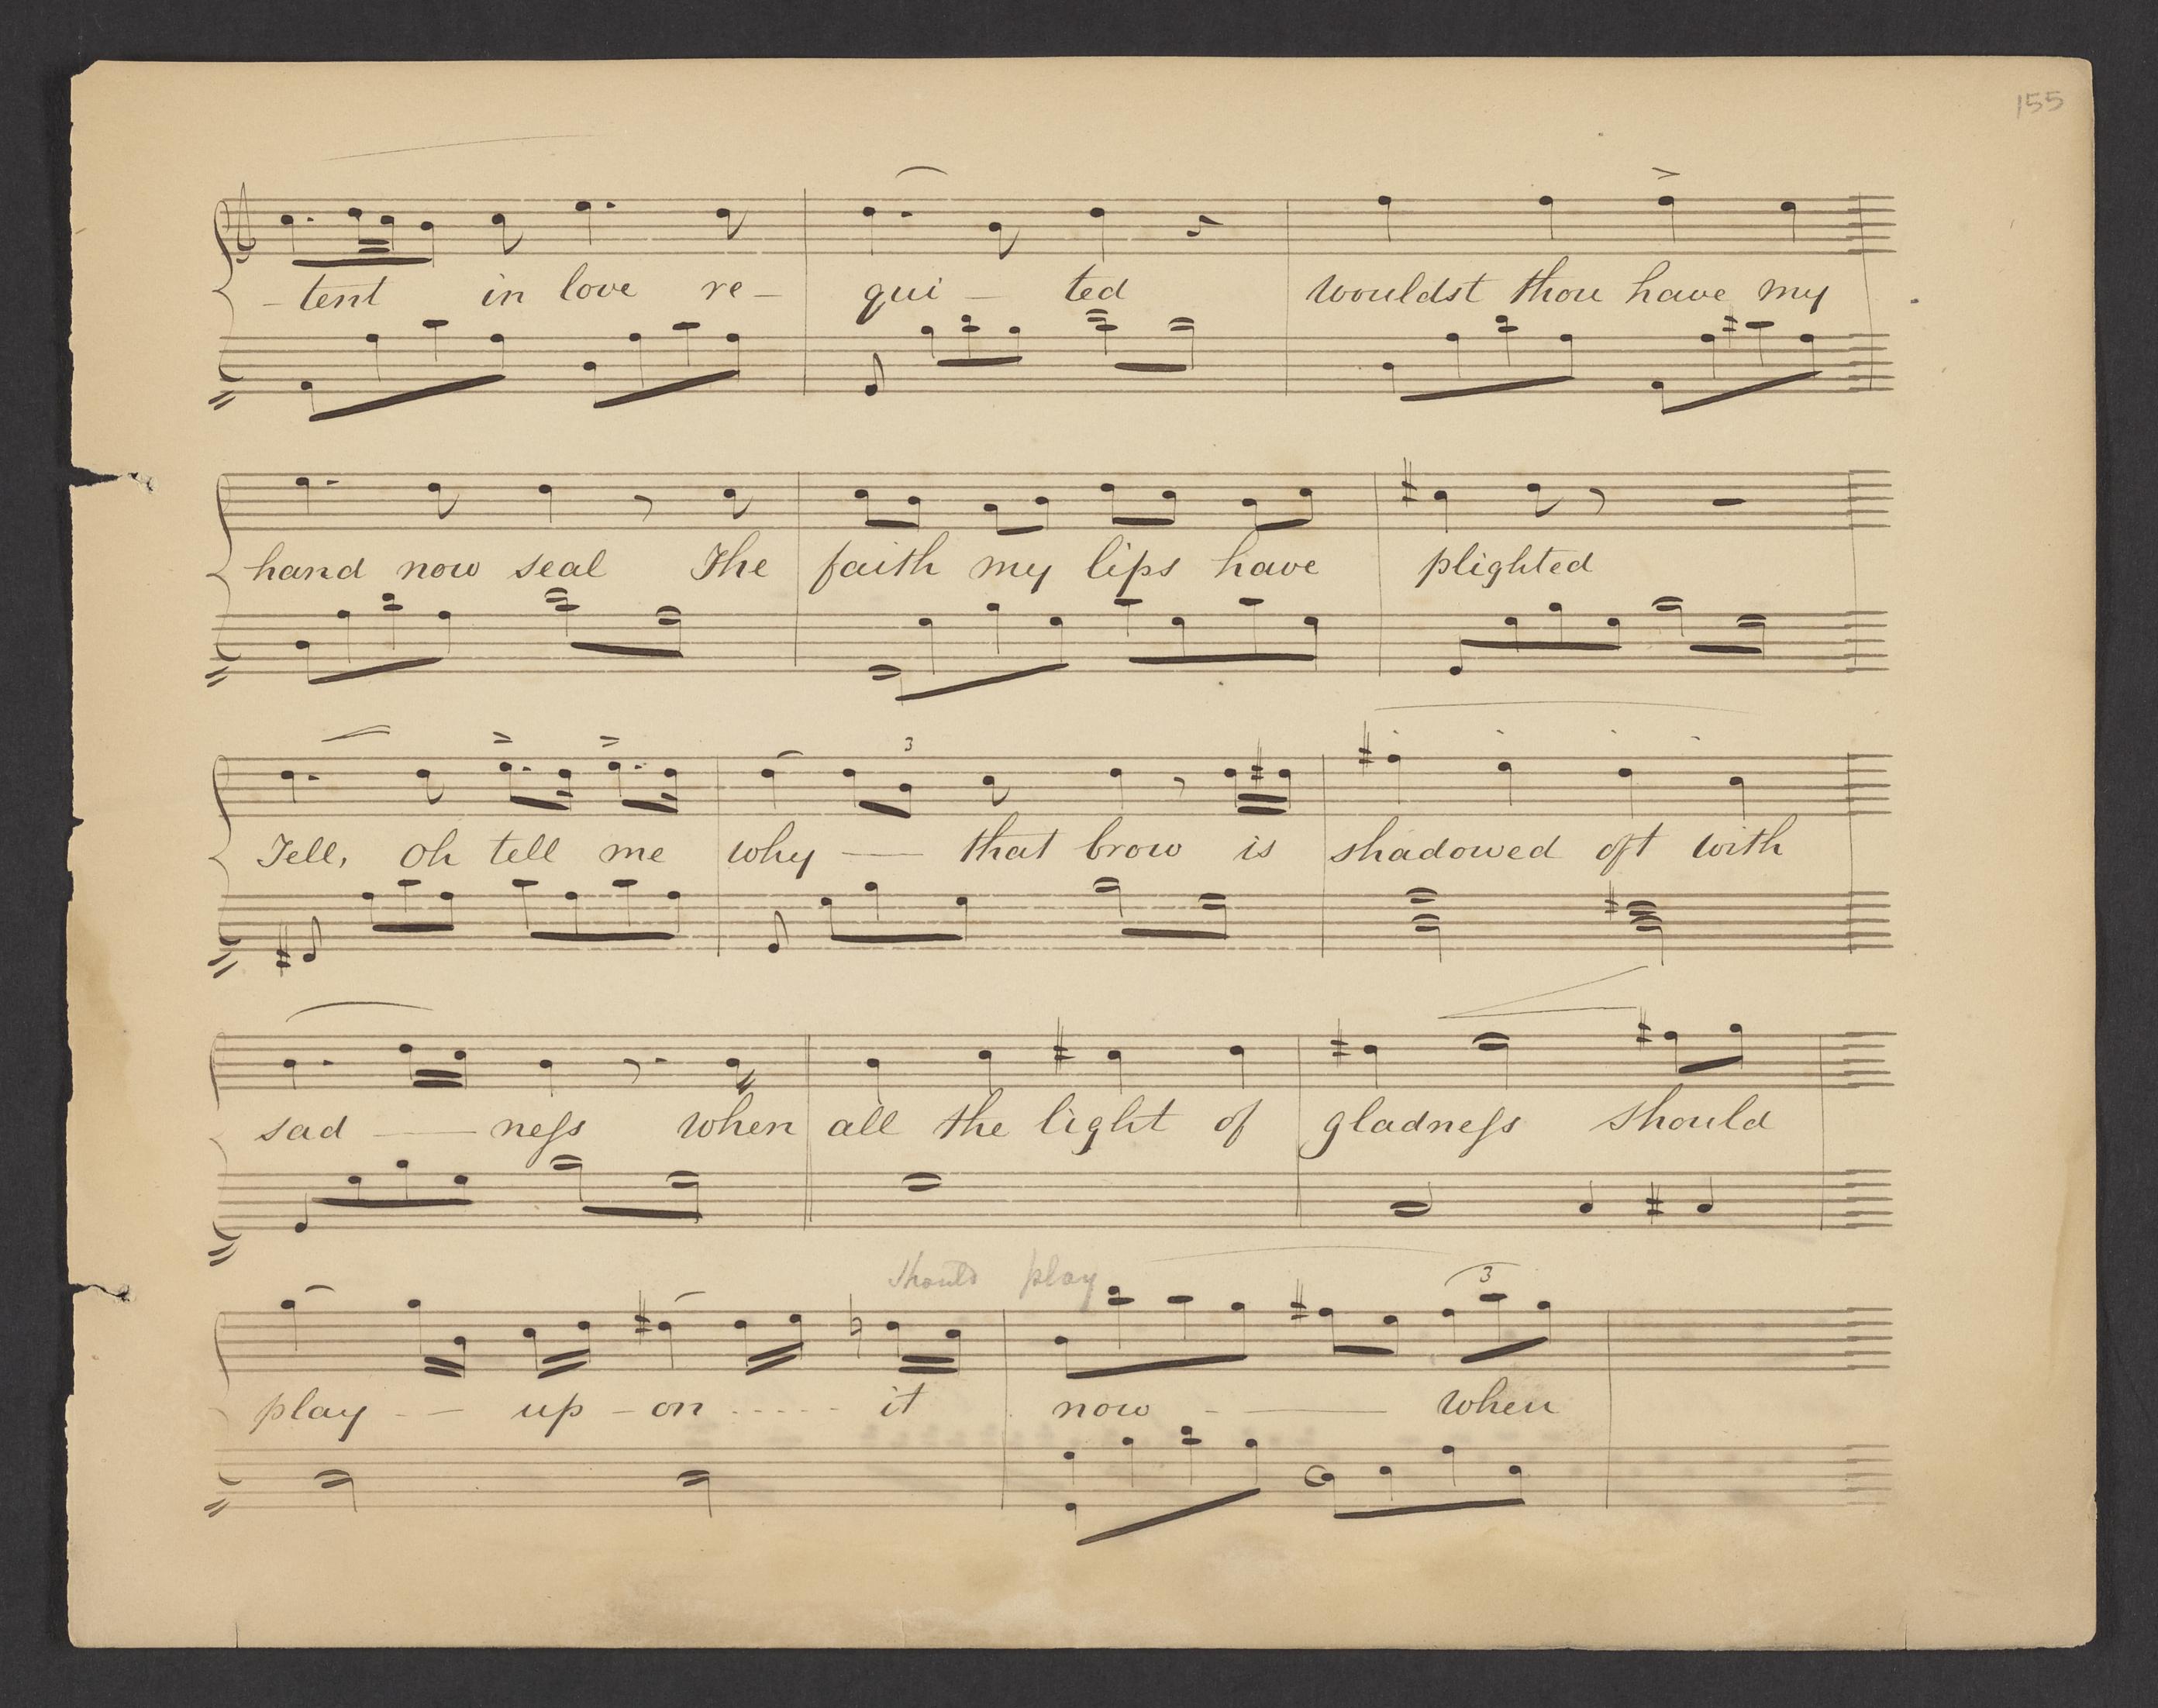 155
- tent in love re -
qui - ted
wouldst thou have my
hand now seal The faith my lips have plighted
3
Tell, Oh tell me why — that brow is shadowed oft with
sad — neſs when all the light of gladneſs should
should play
3
play - — up - on - - - - - it now - — when